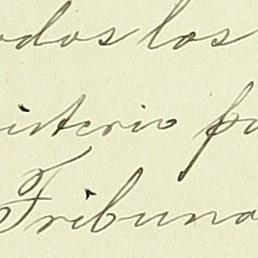 odos los
isterio pu
Tribuna